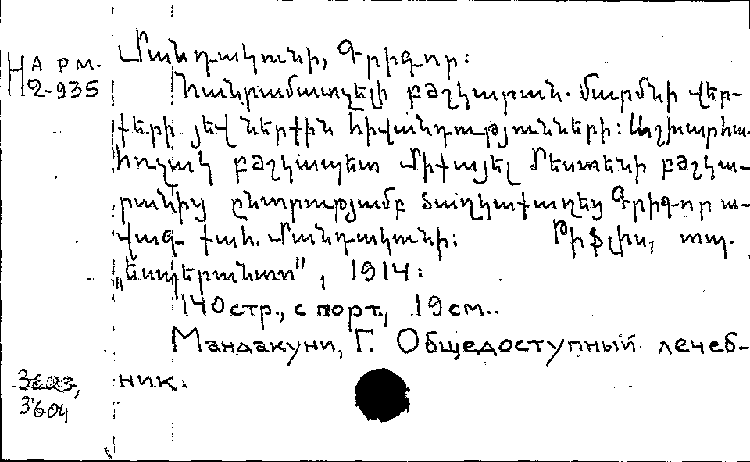 Н АРМ.
2-935
Մանդակունի, Գրիգոր:
Հանրամատչելի բժշկարան. մարմնի վեր-
քերի յեվ ներքին հիվանդությունների: Աշխարհա-
հռչակ բժշկապետ Միքայել Րեստենի բժշկա-
րանից ընտրությամբ ծաղկաքաղեց Գրիգոր ա-
վագ քահ. Մանդակունի: Թիֆլիս, տպ.
„Էսպերանտո", 1914:
140 стр., с порт., 19 см..
Мандакуни, Г. Общедоступный лечеб-
ник.
3603,
3604